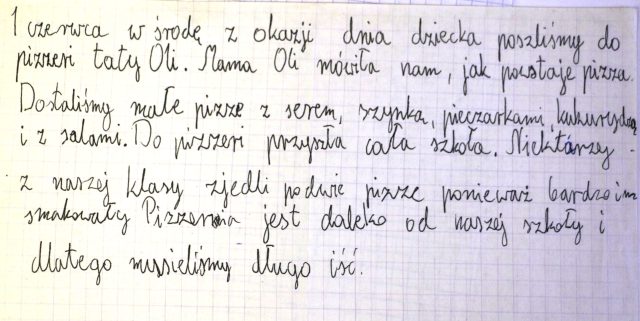 1 czerwca w środę z okazji dnia dziecka poszliśmy do
pizzeri taty Oli. Mama Oli mówiła nam, jak powstaje pizza.
Dostaliśmy małe pizze z serem, szynką, pieczarkami, kukurydzą
i z salami. Do pizzeri przyszła cała szkoła. Niektórzy
z naszej klasy zjedli po dwie pizze ponieważ bardzo im
smakowały Pizzeria jest daleko od naszej szkoły i
dlatego mussieliśmy długo iść.